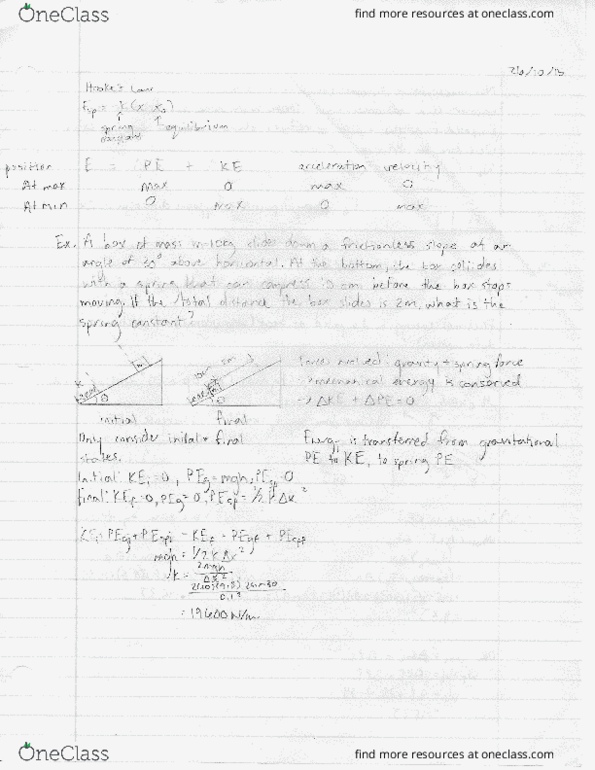 OneClass
find more resources at oneclass.com
26/10/13
Hooke's Law
Fsp = k(x x₀)
spring equilibrium
constant
position E = PE + KE acceleration velocity
At max max 0 max 0
At min 0 max 0 max
Ex. A box of mass m=10kg slides down a frictionless slope at an
angle of 30° above horizontal. At the bottom, the box collides
with a spring that can compress 10 cm before the box stops
moving. If the total distance the box slides is 2m, what is the
spring constant?
m
θ
θ
Forces involved: gravity + spring force
→ mechanical energy is conserved
→ ΔKE + ΔPE = 0
initial final
Only consider initial + final
states.
Energy is transferred from gravitational
PE to KE, to spring PE
Initial: KEi = 0, PEg = mgh, PEsp = 0
final: KEf = 0, PEg = 0, PEsp = 1/2 k Δx²
KEi + PEgi + PEspi = KEf + PEgf + PEspf
mgh = 1/2 k Δx²
k = 2mgh
Δx²
= 2(10)(9.8) 2sin30
0.1²
= 19600 N/m
OneClass
find more resources at oneclass.com